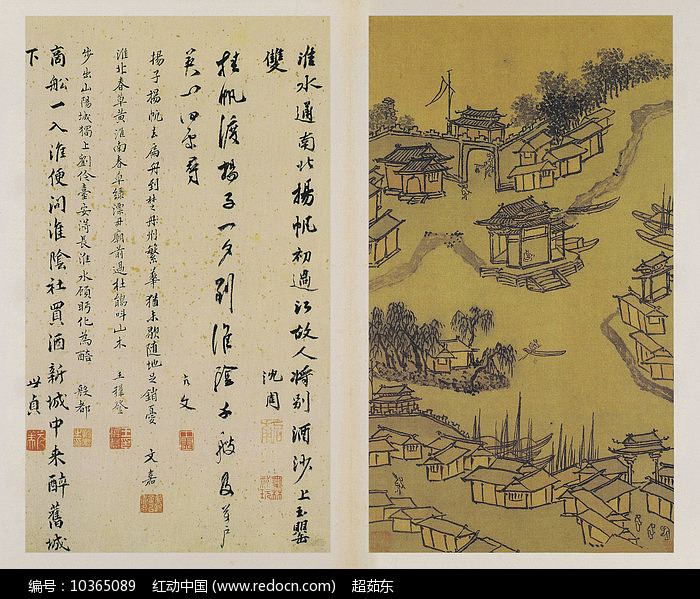 淮水通南北揚帆初過江故人將別酒沙上玉罌
雙
沈周
掛帆渡揚子一夕到淮陰千艘
文
揚子揚帆去扁舟到楚舟州繁華猶未歇隨地足銷憂
文嘉
淮北春草黃淮南春草綠漂母廟前過杜鵑叫山木
王穉登
步出山陽城獨上劉伶臺安得長淮水顧眄化為醅
殷都
商船一入淮便問淮陰社買酒新城中來醉舊城
下
世貞
编号：10365089 红动中国 (www.redocn.com) 超茹东